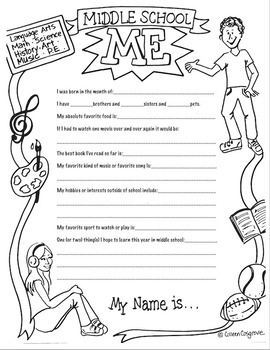 MIDDLE SCHOOL
ME
Language Arts
Math · Science
History · Art
Music · P.E.
I was born in the month of:
I have ________ brothers and ________ sisters and ________ pets.
My absolute favorite food is:
If I had to watch one movie over and over again it would be:
The best book I've read so far is:
My favorite kind of music or favorite song is:
My hobbies or interests outside of school include:
My favorite sport to watch or play is:
One (or two) thing(s) I hope to learn this year in middle school:
My Name is...
© Colleen Cosgrove